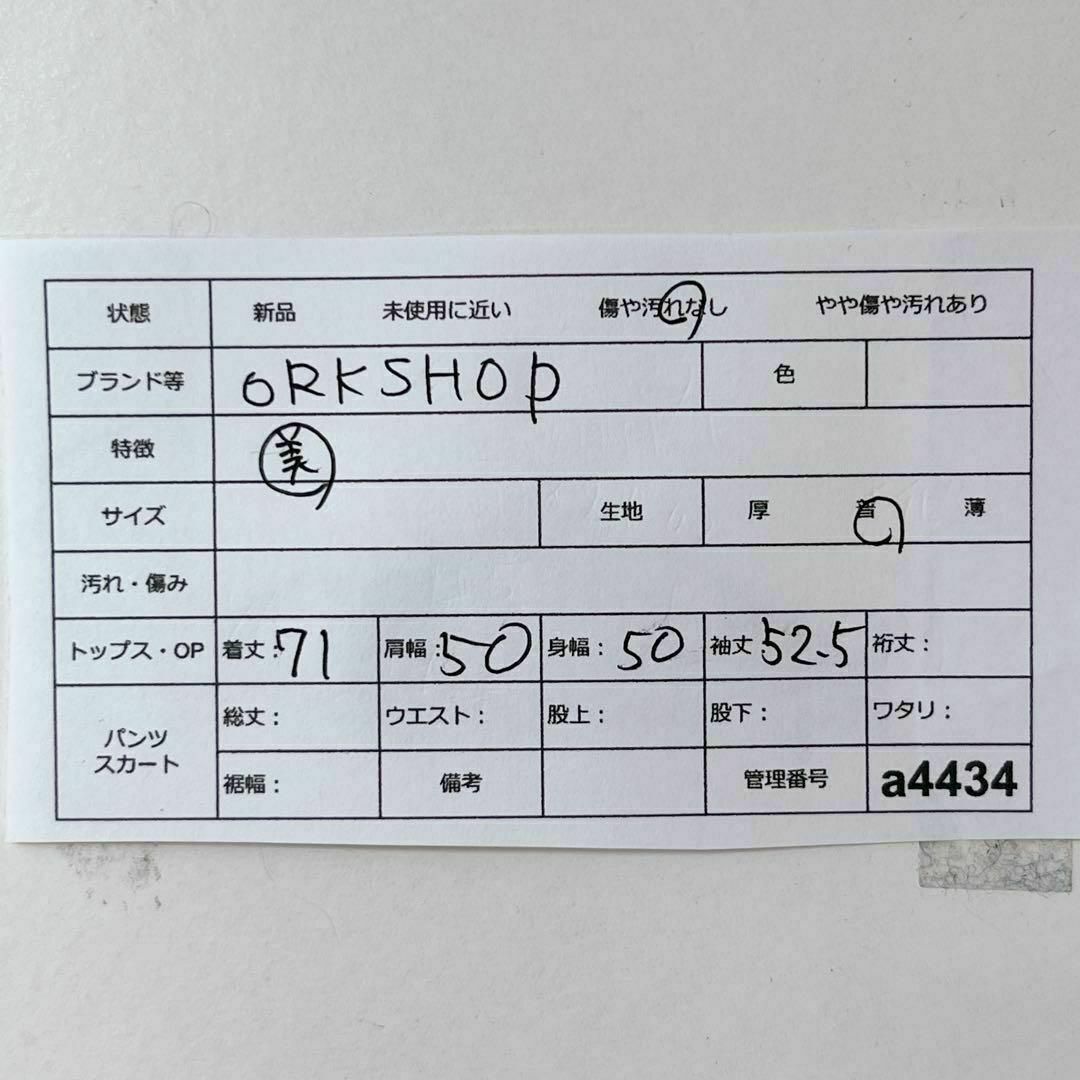 状態 新品 未使用に近い 傷や汚れなし やや傷や汚れあり
ブランド等 oRKSHOp 色
特徴 美
サイズ 生地 厚 普 薄
汚れ・傷み
トップス・OP 着丈：71 肩幅：50 身幅：50 袖丈：52.5 裄丈：
パンツ スカート
総丈： ウエスト： 股上： 股下： ワタリ：
裾幅： 備考 管理番号 a4434